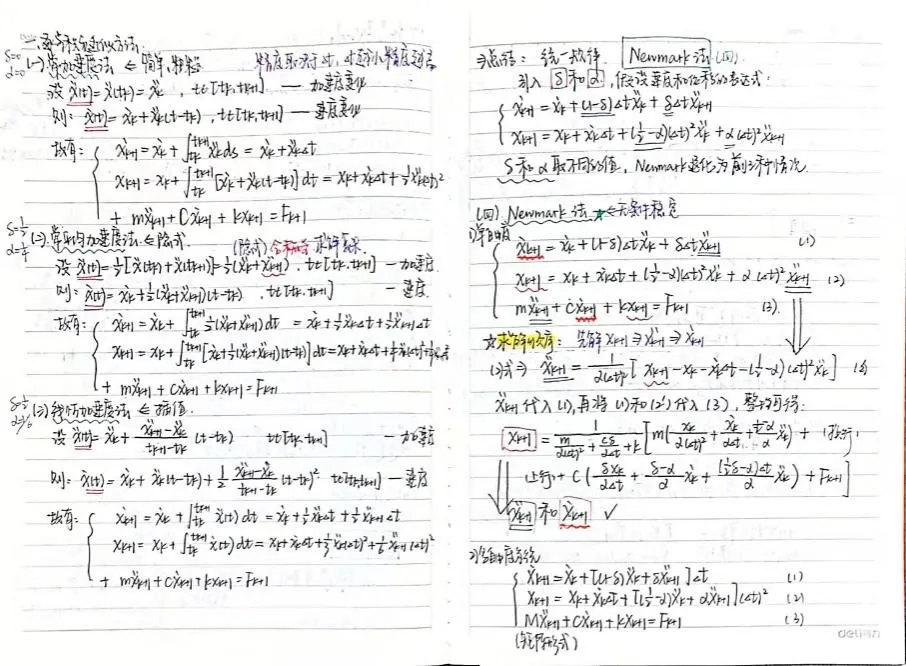 一、逐步积分近似方法.
δ=0 α=0 (一) 常加速度法 ⇐ 简单,粗糙 精度取决于Δt, Δt越小精度越高
设 ẍ(t)=ẍ(tk)=ẍk , t∈[tk,tk+1] — 加速度变化
则: ẋ(t)=ẋk+ẍk(t-tk), t∈[tk,tk+1] — 速度变化
故有: { ẋk+1=ẋk+∫tk^tk+1 ẍk ds=ẋk+ẍkΔt
xk+1=xk+∫tk^tk+1[ẋk+ẍk(t-tk)]dt=xk+ẋkΔt+½ẍk(Δt)²
+ mẍk+1+Cẋk+1+kxk+1=Fk+1
δ=½ α=¼ (二) 常平均加速度法 ⇐ 隐式 (隐式) 求解
设 ẍ(t)=½[ẍ(tk)+ẍ(tk+1)]=½(ẍk+ẍk+1), t∈[tk,tk+1] — 加速度
则: ẋ(t)=ẋk+½(ẍk+ẍk+1)(t-tk), t∈[tk,tk+1] — 速度
故有: { ẋk+1=ẋk+∫tk^tk+1 ½(ẍk+ẍk+1)dt=ẋk+½ẍkΔt+½ẍk+1Δt
xk+1=xk+∫tk^tk+1[ẋk+½(ẍk+ẍk+1)(t-tk)]dt=xk+ẋkΔt+¼ẍk(Δt)²+
+ mẍk+1+Cẋk+1+kxk+1=Fk+1
δ=½ α=1/6 (三) 线性加速度法 ⇐ 插值.
设 ẍ(t)=ẍk+(ẍk+1-ẍk)/(tk+1-tk)(t-tk) t∈[tk,tk+1] — 加速度
则: ẋ(t)=ẋk+ẍk(t-tk)+½(ẍk+1-ẍk)/(tk+1-tk)(t-tk)² t∈[tk,tk+1] — 速度
故有: { ẋk+1=ẋk+∫tk^tk+1 ẍ(t)dt=ẋk+½ẍkΔt+½ẍk+1Δt
xk+1=xk+∫tk^tk+1 ẋ(t)dt=xk+ẋkΔt+⅓ẍk(Δt)²+1/6ẍk+1(Δt)²
+ mẍk+1+cẋk+1+kxk+1=Fk+1
⇒总结: 统一软件 Newmark法 (四)
引入 δ和α, 假设速度和位移的表达式:
{ ẋk+1=ẋk+(1-δ)Δtẍk+δΔtẍk+1
xk+1=xk+ẋkΔt+(½-α)(Δt)²ẍk+α(Δt)²ẍk+1
δ和α取不同的值, Newmark退化为前三种情况.
(四) Newmark法 ★⇐无条件稳定
1)单自由度
{ ẋk+1=ẋk+(1-δ)Δtẍk+δΔtẍk+1 (1)
xk+1=xk+ẋkΔt+(½-α)(Δt)²ẍk+α(Δt)²ẍk+1 (2)
mẍk+1+cẋk+1+kxk+1=Fk+1 (3).
☆求解顺序: 先解xk+1⇒ẍk+1⇒ẋk+1
(2)式⇒ ẍk+1=1/α(Δt)²[xk+1-xk-ẋkΔt-(½-α)(Δt)²ẍk] (2')
ẍk+1代入(1),再将(1)和(2')代入(3), 整理可得:
xk+1=1/(m/α(Δt)²+cδ/αΔt+k)[m(xk/α(Δt)²+ẋk/αΔt+(½-α)/α ẍk)+
(上行)+C(δxk/αΔt+(δ-α)/α ẋk+(½δ-α)Δt/α ẍk)+Fk+1]
ẍk+1和ẋk+1 ✓
2)多自由度系统
{ ẋk+1=ẋk+[(1-δ)ẍk+δẍk+1]Δt (1)
xk+1=xk+ẋkΔt+[(½-α)ẍk+αẍk+1](Δt)² (2)
Mẍk+1+cẋk+1+kxk+1=Fk+1 (3)
(矩阵形式)
deli得力